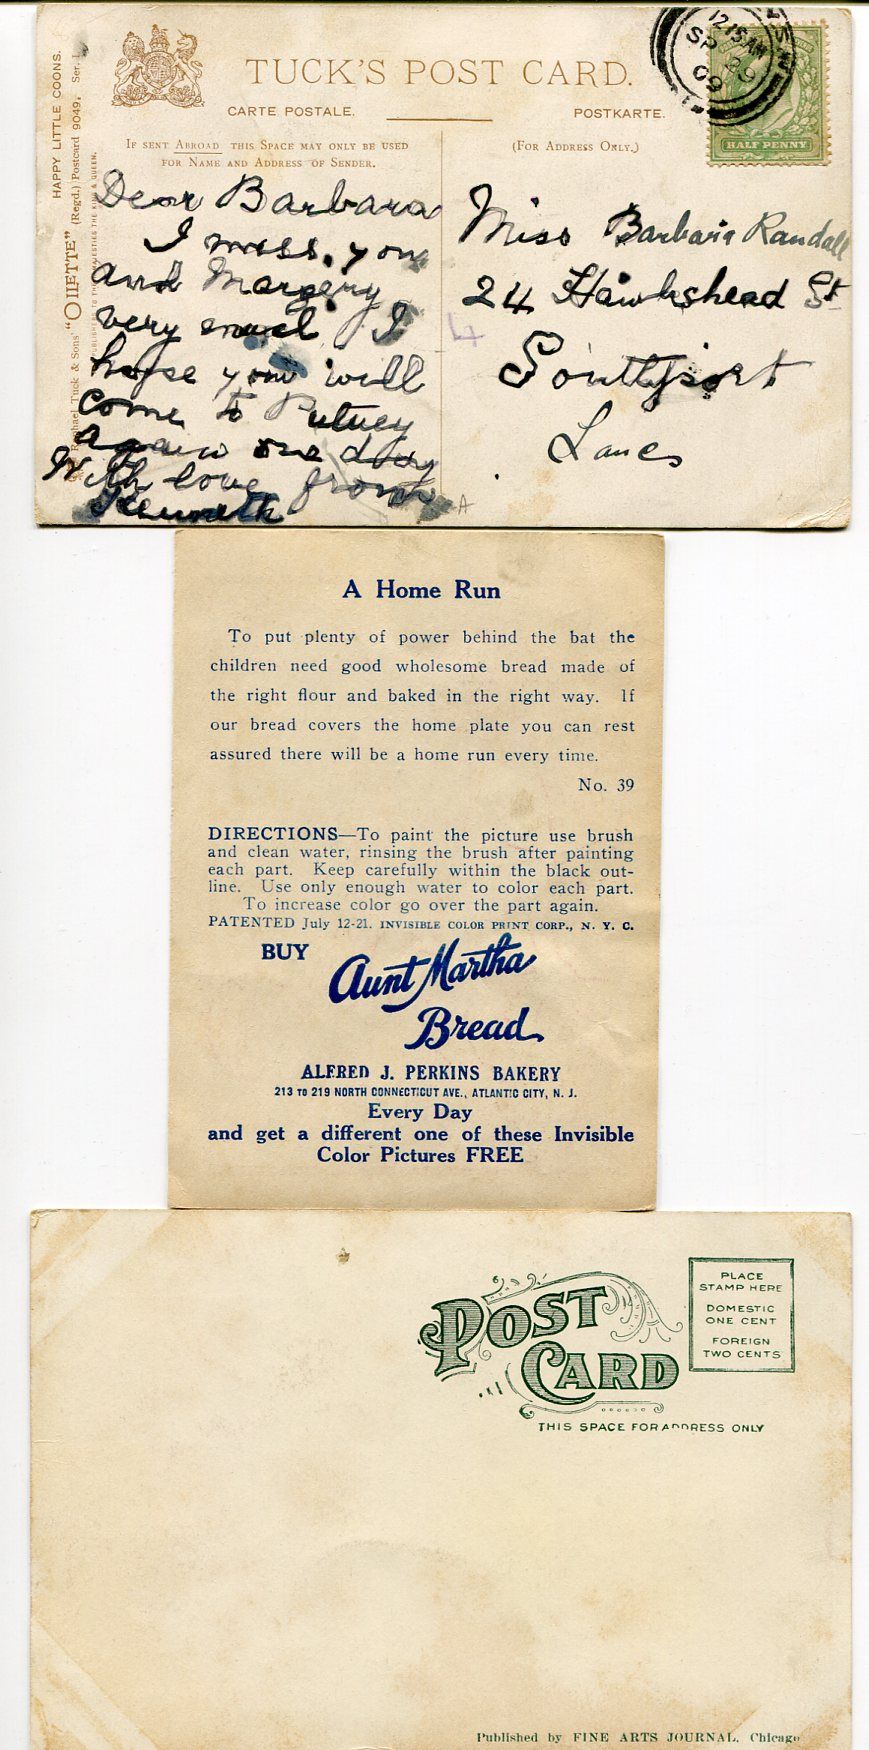 HAPPY LITTLE COONS.
Raphael Tuck & Sons' "OILETTE" (Regd.) Postcard 9049, Ser. I.
TUCK'S POST CARD.
CARTE POSTALE.
POSTKARTE.
IF SENT ABROAD THIS SPACE MAY ONLY BE USED
FOR NAME AND ADDRESS OF SENDER.
(FOR ADDRESS ONLY.)
12.15 AM
SP
09
HALF PENNY
Dear Barbara
I miss you
and Margery
very much. I
hope you will
come to Putney
again one day
With love from
Kenneth
Miss Barbara Randall
24 Hawkshead St
Southport
Lancs
A Home Run
To put plenty of power behind the bat the
children need good wholesome bread made of
the right flour and baked in the right way. If
our bread covers the home plate you can rest
assured there will be a home run every time.
No. 39
DIRECTIONS—To paint the picture use brush
and clean water, rinsing the brush after painting
each part. Keep carefully within the black out-
line. Use only enough water to color each part.
To increase color go over the part again.
PATENTED July 12-21. INVISIBLE COLOR PRINT CORP., N. Y. C.
BUY
Aunt Martha
Bread
ALFRED J. PERKINS BAKERY
213 TO 219 NORTH CONNECTICUT AVE., ATLANTIC CITY, N. J.
Every Day
and get a different one of these Invisible
Color Pictures FREE
POST
CARD
PLACE
STAMP HERE
DOMESTIC
ONE CENT
FOREIGN
TWO CENTS
THIS SPACE FOR ADDRESS ONLY
Published by FINE ARTS JOURNAL, Chicago